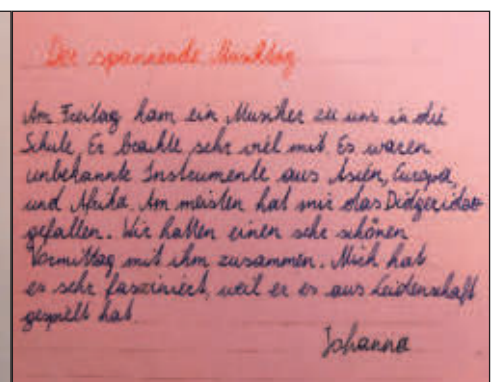 Der spannende Musiktag
Am Freitag kam ein Musiker zu uns in die
Schule. Er brachte sehr viel mit. Es waren
unbekannte Instrumente aus Asien, Europa,
und Afrika. Am meisten hat mir das Didgeridoo
gefallen. Wir hatten einen sehr schönen
Vormittag mit ihm zusammen. Mich hat
es sehr fasziniert, weil er es aus Leidenschaft
gespielt hat.
Johanna